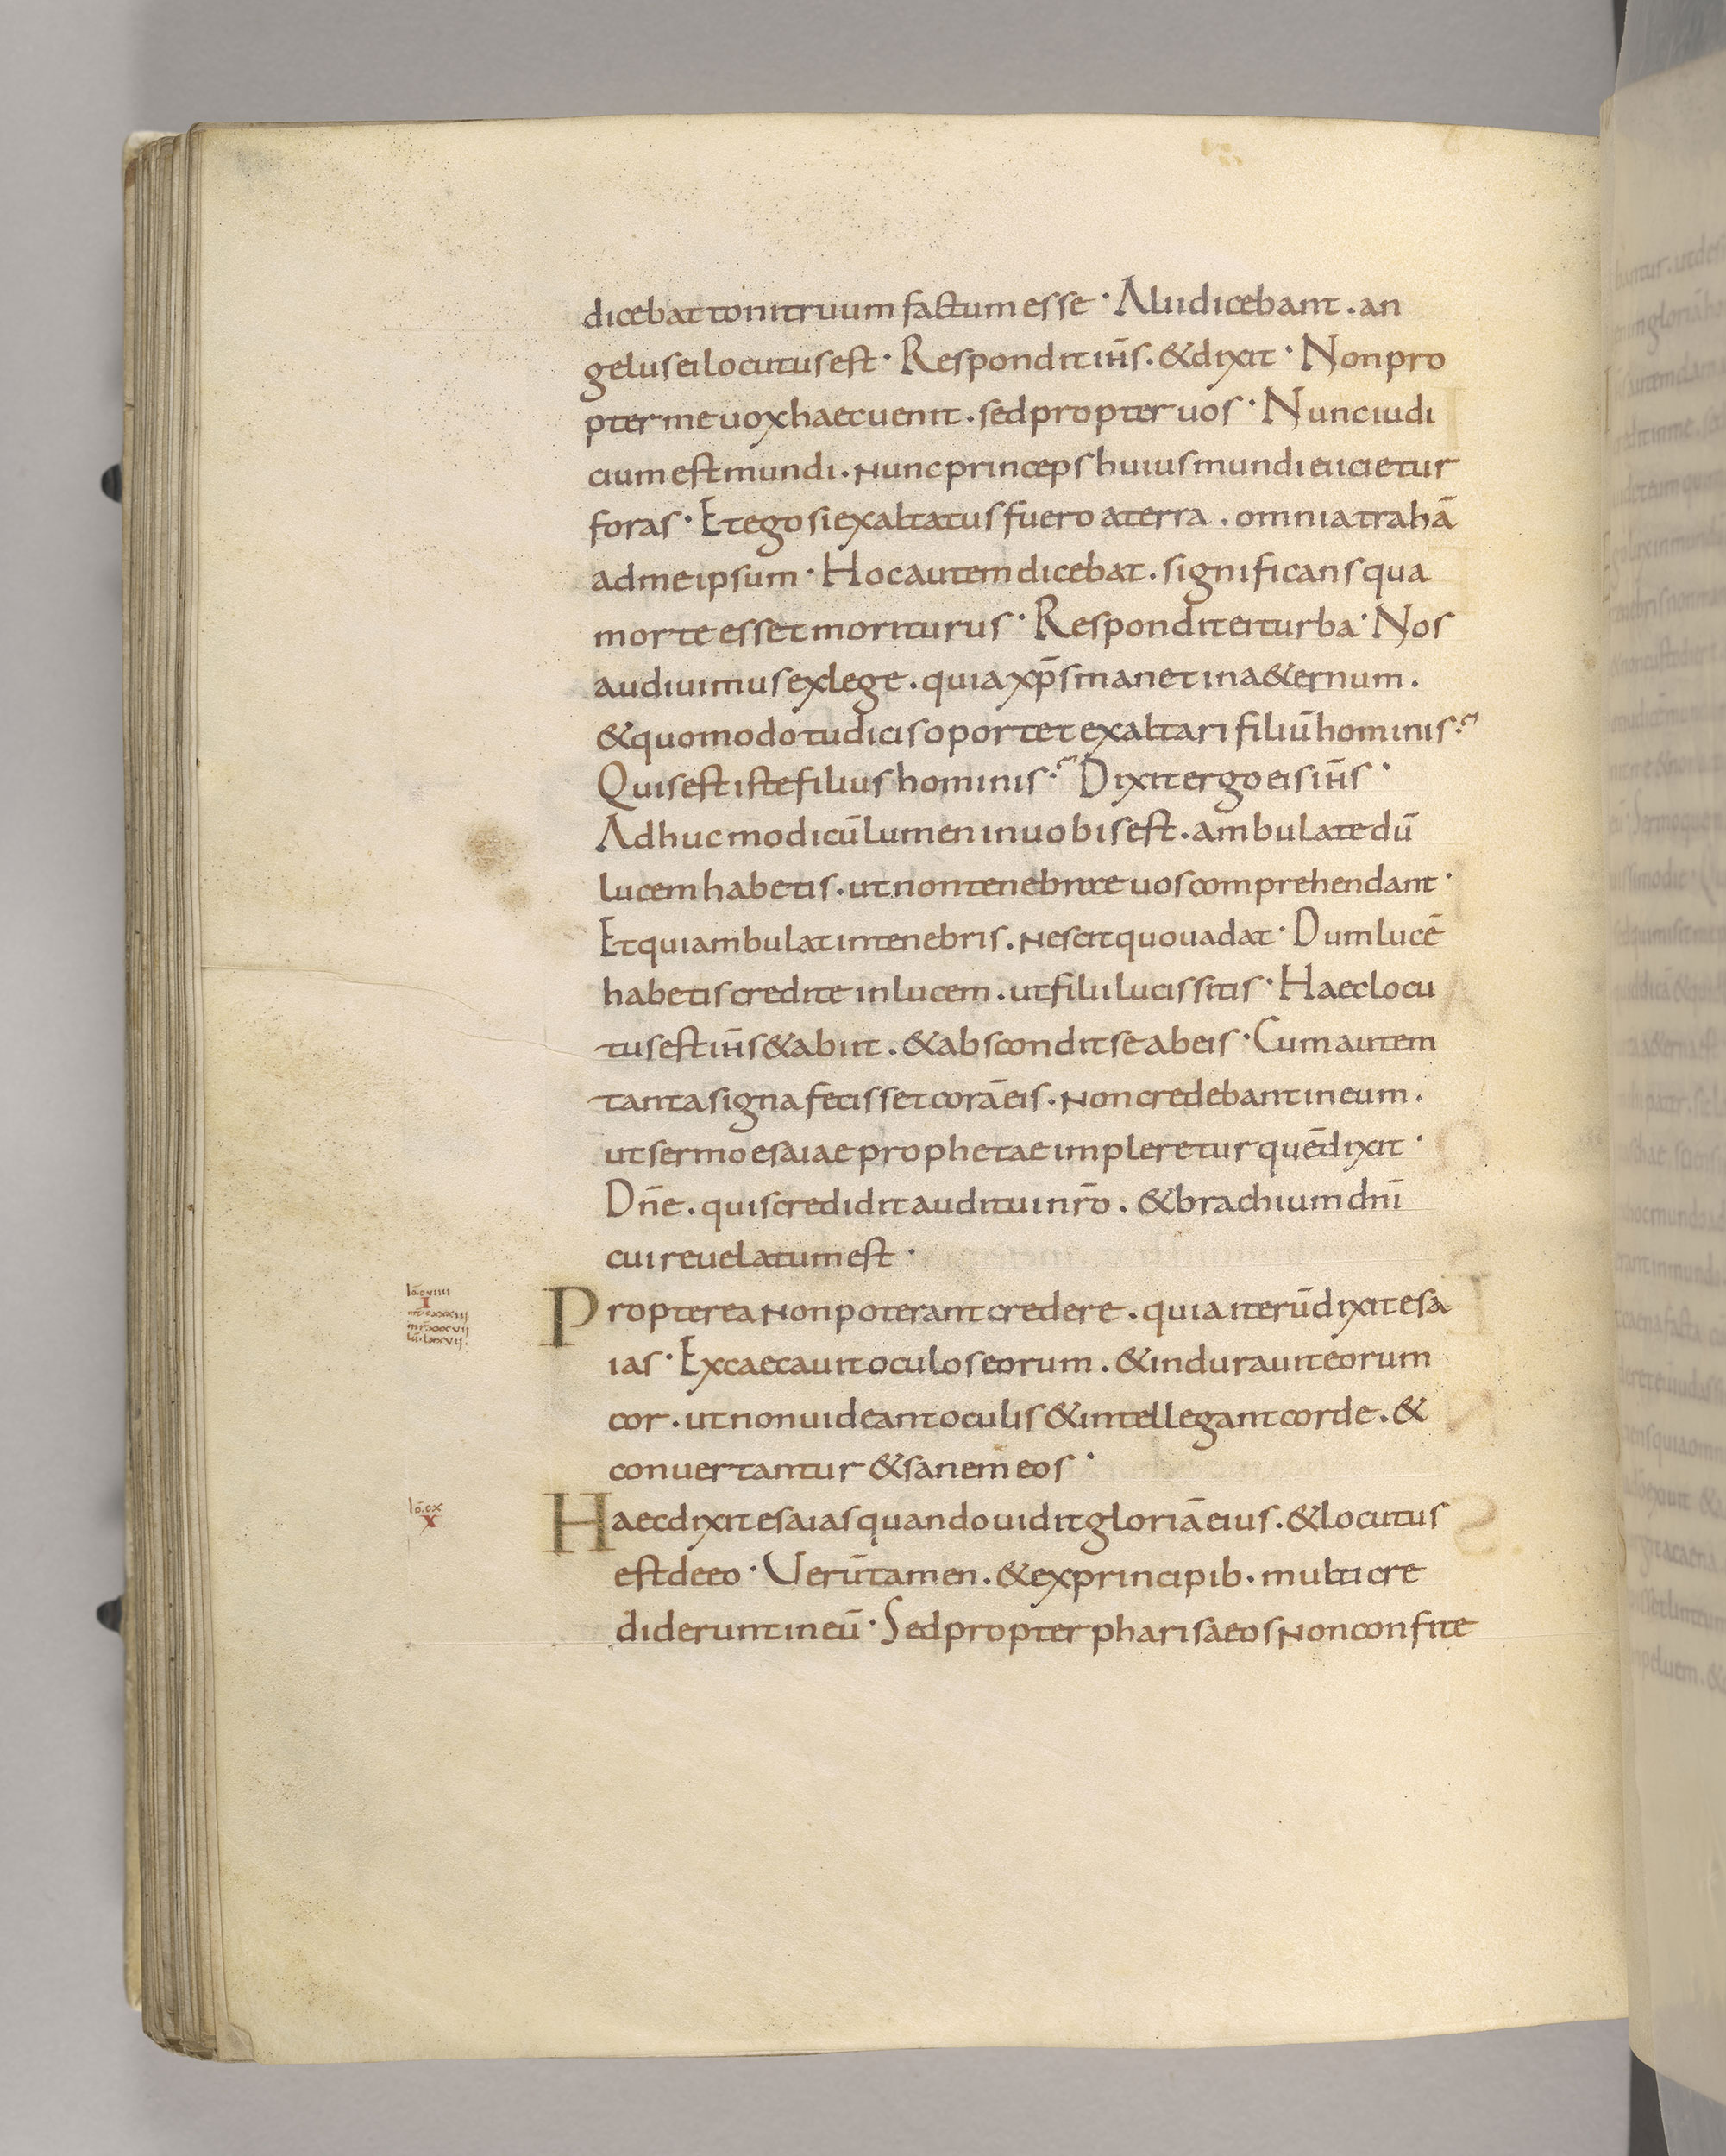 dicebat tonitruum factum esse · Alii dicebant . an
gelus ei locutus est · Respondit ihs̄ . & dixit · Non pro
pter me uox haec uenit . sed propter uos · Nunc iudi
cium est mundi . nunc princeps huius mundi eiicietur
foras · Et ego si exaltatus fuero a terra . omnia trahā
ad me ipsum · Hoc autem dicebat . significans qua
morte esset moriturus · Respondit ei turba · Nos
audiuimus ex lege . quia xp̄s manet in a&ernum .
& quomodo tu dicis oportet exaltari filiū hominis ?
Quis est iste filius hominis ? Dixit ergo eis ihs̄ ·
Adhuc modicū lumen in uobis est . ambulate dū
lucem habetis . ut non tenebrae uos comprehendant ·
Et qui ambulat in tenebris . nescit quo uadat · Dum lucē
habetis credite in lucem . ut filii lucis sitis · Haec locu
tus est ihs̄ & abiit . & abscondit se ab eis · Cum autem
tanta signa fecisset corā eis . non credebant in eum .
ut sermo esaiae prophetae impleretur quē dixit ·
Dn̄e . quis credidit auditui nr̄o . & brachium dn̄i
cui reuelatum est ·
Iō . cviiii
I
mt̄ . cxxxiii
mr̄ . xxxvii
lū . lxxvii .
Propterea non poterant credere . quia iterū dixit esa
ias · Excaecauit oculos eorum . & indurauit eorum
cor . ut non uideant oculis & intellegant corde . &
conuertantur & sanem eos ·
Iō . cx
X
Haec dixit esaias quando uidit gloriā eius . & locutus
est de eo · Uerūtamen . & ex principib . multi cre
diderunt in eū · Sed propter pharisaeos non confite